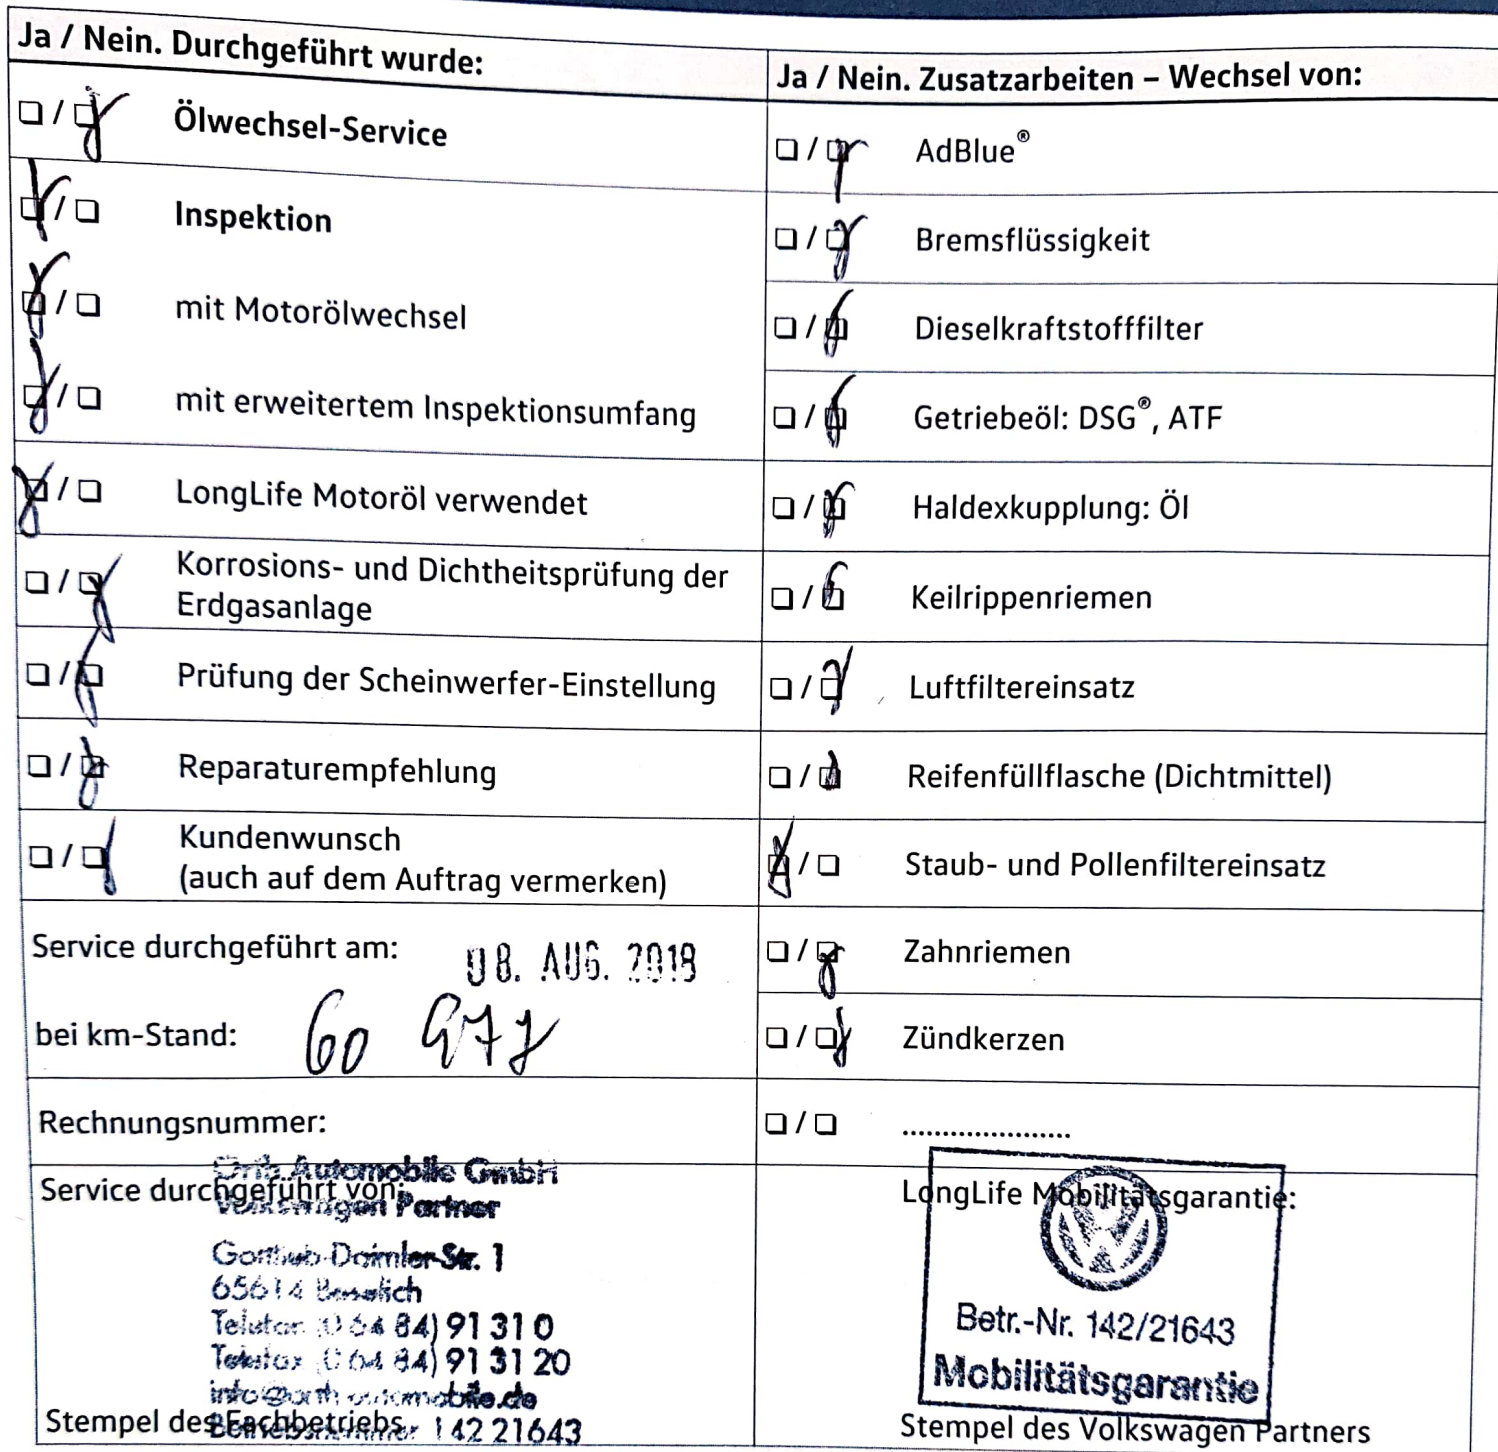 Ja / Nein. Durchgeführt wurde:
Ölwechsel-Service
Inspektion
mit Motorölwechsel
mit erweitertem Inspektionsumfang
LongLife Motoröl verwendet
Korrosions- und Dichtheitsprüfung der
Erdgasanlage
Prüfung der Scheinwerfer-Einstellung
Reparaturempfehlung
Kundenwunsch
(auch auf dem Auftrag vermerken)
Service durchgeführt am:
08. AUG. 2018
bei km-Stand: 60 977
Rechnungsnummer:
Service durchgeführt von:
Orth Automobile GmbH
Volkswagen Partner
Gottlieb-Daimler-Str. 1
65614 Beselich
Telefon (0 64 84) 91 31 0
Telefax (0 64 84) 91 31 20
info@orth-automobile.de
Betriebsnummer 142 21643
Stempel des Fachbetriebs
Ja / Nein. Zusatzarbeiten – Wechsel von:
AdBlue®
Bremsflüssigkeit
Dieselkraftstofffilter
Getriebeöl: DSG®, ATF
Haldexkupplung: Öl
Keilrippenriemen
Luftfiltereinsatz
Reifenfüllflasche (Dichtmittel)
Staub- und Pollenfiltereinsatz
Zahnriemen
Zündkerzen
.....................
LongLife Mobilitätsgarantie:
Betr.-Nr. 142/21643
Mobilitätsgarantie
Stempel des Volkswagen Partners